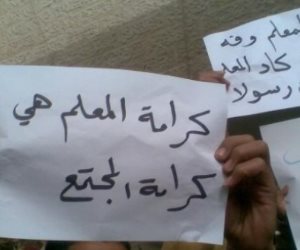 كرامة المعلم هي
كرامة المجتمع
لمعلم وفه
كاد المعلـ
رسولا